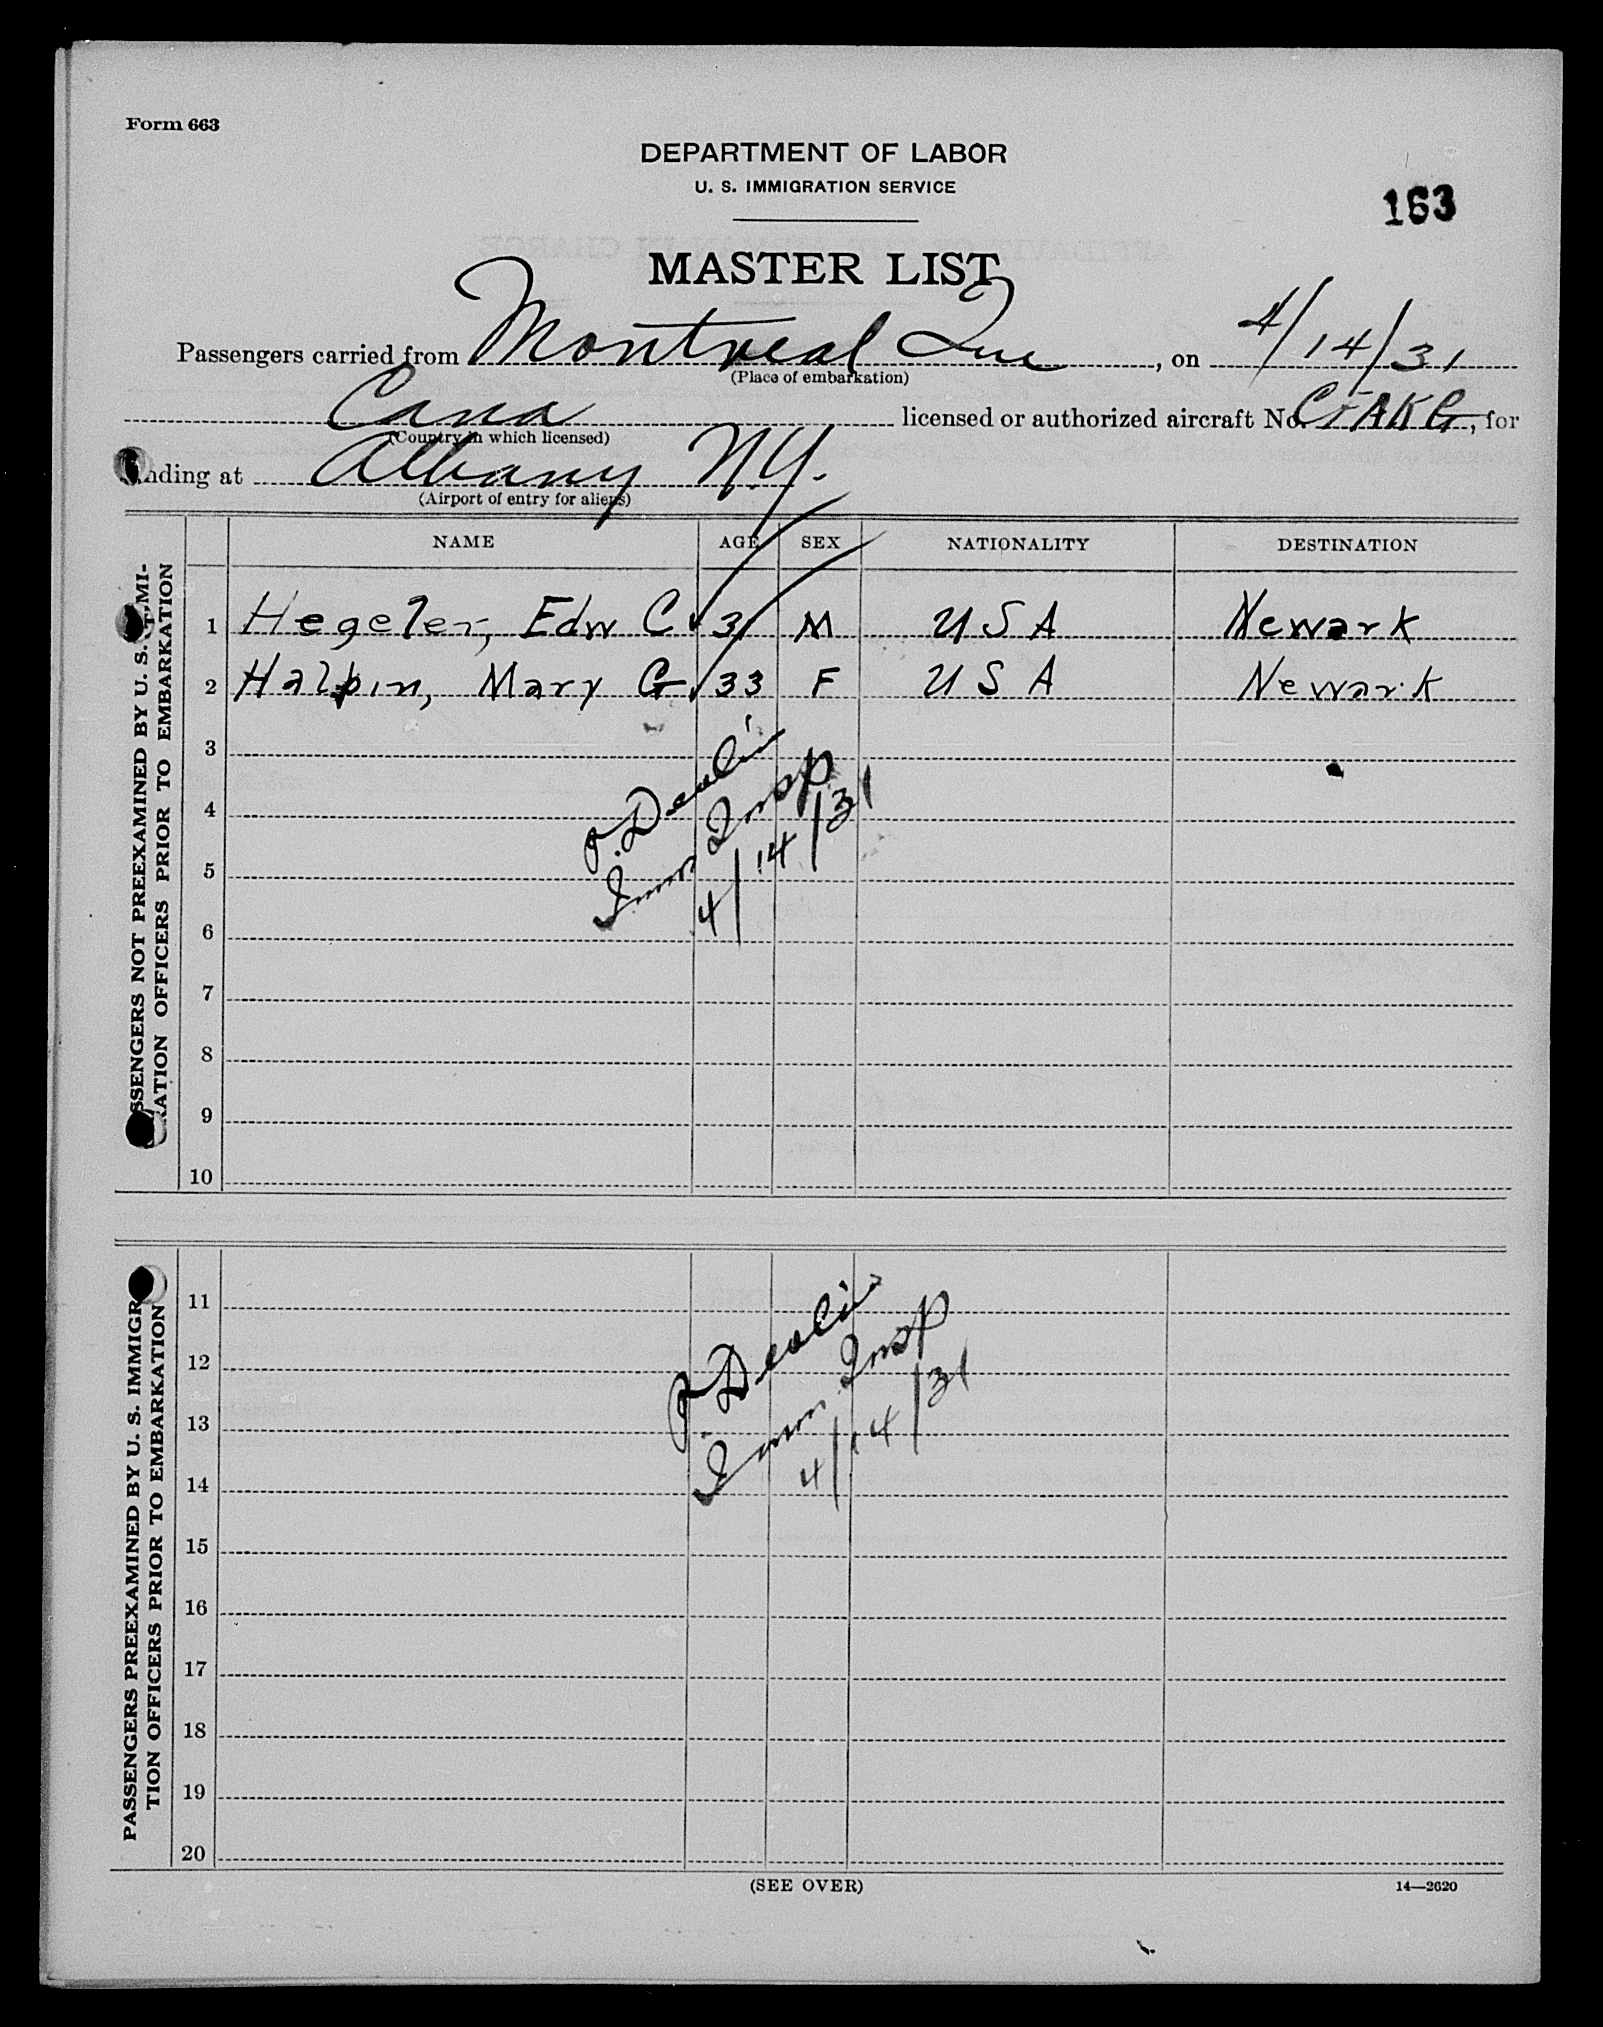 Form 663
DEPARTMENT OF LABOR
U. S. IMMIGRATION SERVICE
163
MASTER LIST
Passengers carried from Montreal Que, on 4/14/31
(Place of embarkation)
Cana licensed or authorized aircraft No. CF-AKG, for
(Country in which licensed)
nding at Albany N.Y.
(Airport of entry for aliens)
NAME AGE SEX NATIONALITY DESTINATION
SSENGERS NOT PREEXAMINED BY U. S. IMMI-
RATION OFFICERS PRIOR TO EMBARKATION
1 Hegeler, Edw C 31 M USA Newark
2 Halpin, Mary G. 33 F USA Newark
3
4
5
6
7
8
9
10
P. Devlin
Imm Insp
4/14/31
PASSENGERS PREEXAMINED BY U. S. IMMIGR
TION OFFICERS PRIOR TO EMBARKATION
11
12
13
14
15
16
17
18
19
20
P. Devlin
Imm Insp
4/14/31
(SEE OVER)
14—2620